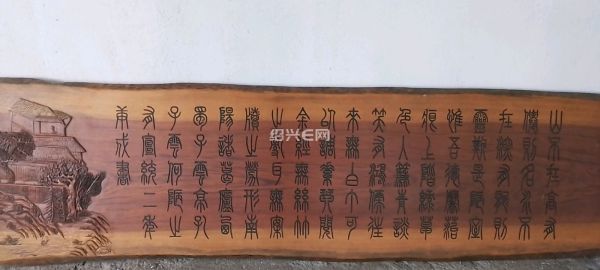 山不在高有
僊則名水不
在深有龍則
靈斯是陋室
惟吾德馨苔
痕上階綠草
色入簾青談
笑有鴻儒往
來無白丁可
以調素琴閱
金經無絲竹
之亂耳無案
牘之勞形南
陽諸葛廬西
蜀子雲亭孔
子云何陋之
有宣統二年
庚戌書
绍兴E网